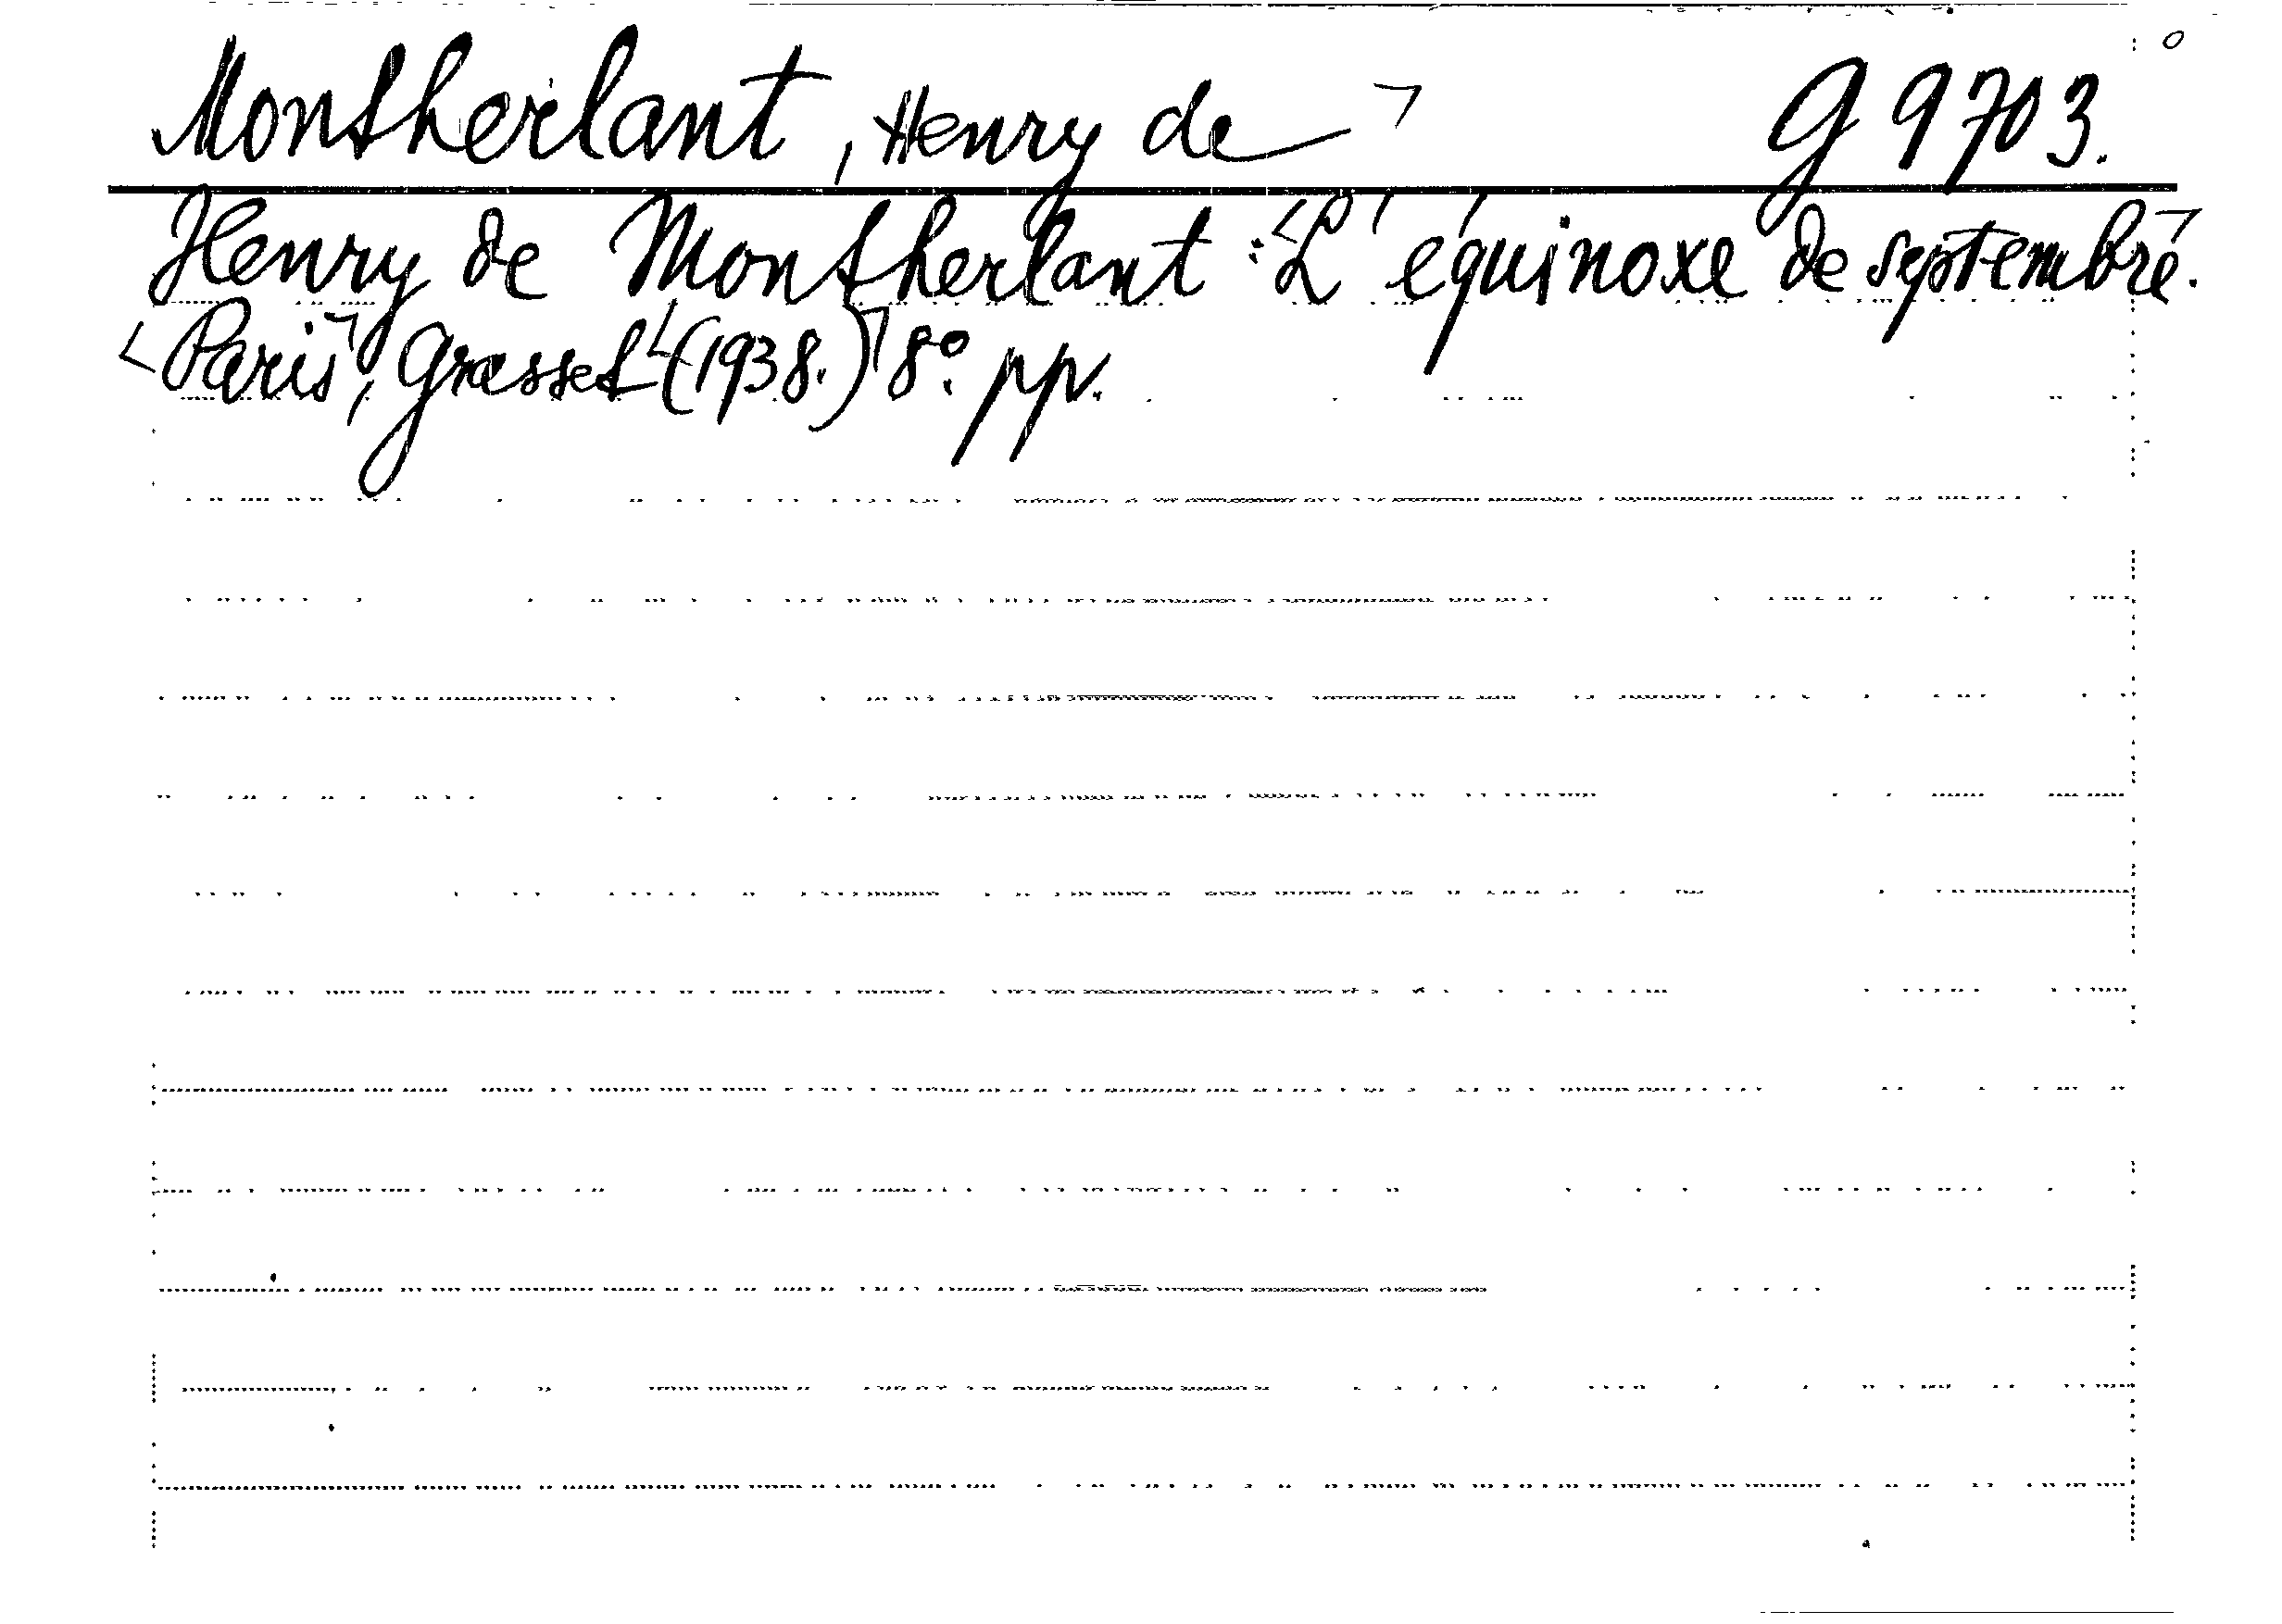 Montherlant, Henry de G 9703.
Henry de Montherlant: L'équinoxe de septembre.
Paris, Grasset (1938.) 8°. pp.